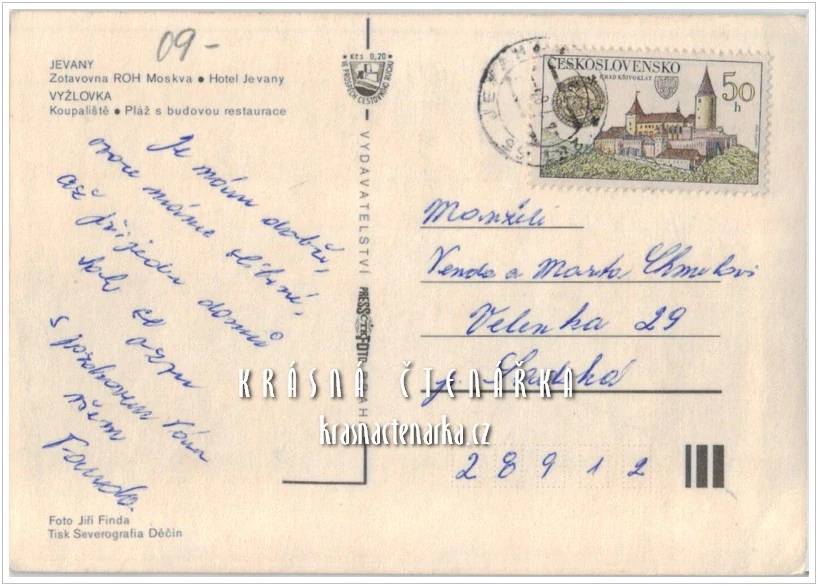 09-
JEVANY
Zotavovna ROH Moskva ● Hotel Jevany
VYŽLOVKA
Koupaliště ● Pláž s budovou restaurace
Kčs 0,20
VE PROSPĚCH CESTOVNÍHO RUCHU
JEVANY
ČESKOSLOVENSKO
HRAD KŘIVOKLÁT
50
h
VYDAVATELSTVÍ PRESSFOTO PRAHA
Je mám dobře,
máme slíbené,
až přijedu domů
tak se
s pozdravem Vám
všem
Fanda.
Manželé
Venda a Marta Chmelovi
Velenka 29
p. Sadská
28912
KRÁSNÁ ČTENÁŘKA
krasnactenarka.cz
Foto Jiří Finda
Tisk Severografia Děčín